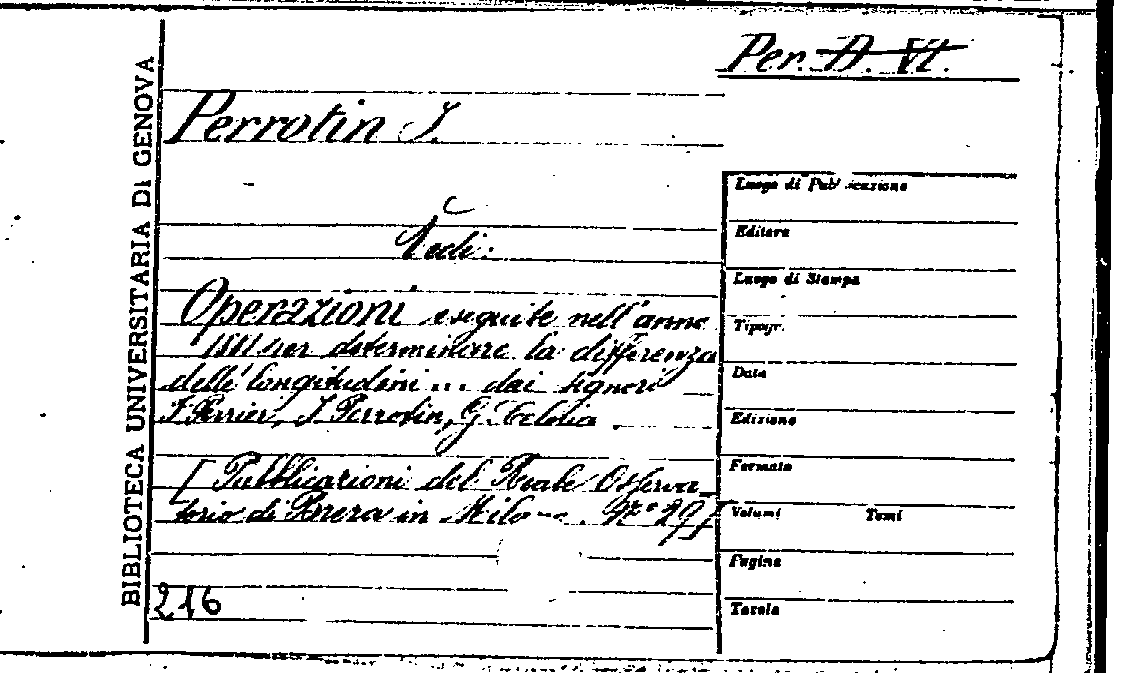 Per. A. VI.
BIBLIOTECA UNIVERSITARIA DI GENOVA
Perrotin J.
Vedi:
Operazioni eseguite nell'anno
1881 per determinare la differenza
delle longitudini ... dai signori
F. Perrier, J. Perrotin, G. Celoria.
[Pubblicazioni del Reale Osserva-
torio di Brera in Milano. N° 29]
216
Luogo di Pubblicazione
Editore
Luogo di Stampa
Tipogr.
Data
Edizione
Formato
Volumi Tomi
Pagine
Tavole